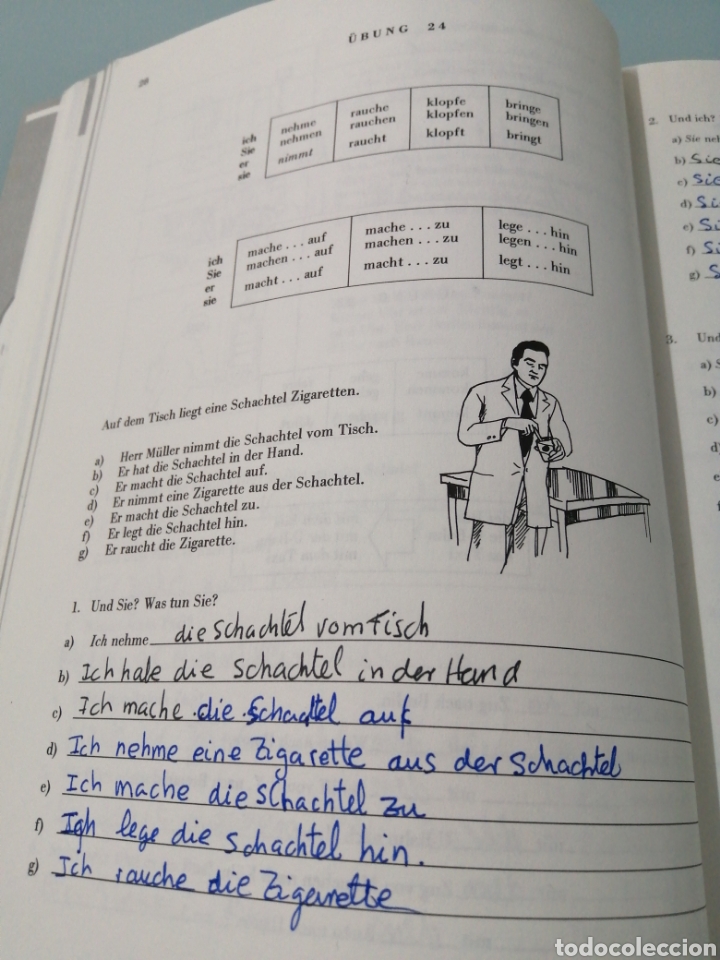 ÜBUNG 24
26
ich nehme rauche klopfe bringe
Sie nehmen rauchen klopfen bringen
er
sie nimmt raucht klopft bringt
ich mache . . . auf mache . . . zu lege . . . hin
Sie machen . . . auf machen . . . zu legen . . . hin
er
sie macht . . . auf macht . . . zu legt . . . hin
Auf dem Tisch liegt eine Schachtel Zigaretten.
a) Herr Müller nimmt die Schachtel vom Tisch.
b) Er hat die Schachtel in der Hand.
c) Er macht die Schachtel auf.
d) Er nimmt eine Zigarette aus der Schachtel.
e) Er macht die Schachtel zu.
f) Er legt die Schachtel hin.
g) Er raucht die Zigarette.
1. Und Sie? Was tun Sie?
a) Ich nehme die Schachtel vom Tisch
b) Ich habe die Schachtel in der Hand
c) Ich mache die Schachtel auf
d) Ich nehme eine Zigarette aus der Schachtel
e) Ich mache die Schachtel zu
f) Ich lege die Schachtel hin.
g) Ich rauche die Zigarette
2. Und ich?
a) Sie
b) Sie
c) Sie
d) Si
e) Si
f) Si
g) S
3. Und
a) S
b)
c)
d)
e
f
todocoleccion